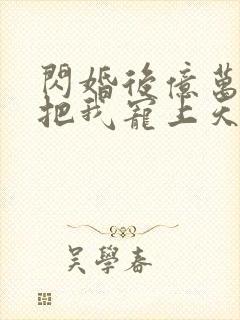 閃婚後億萬
把我寵上天
吳學春